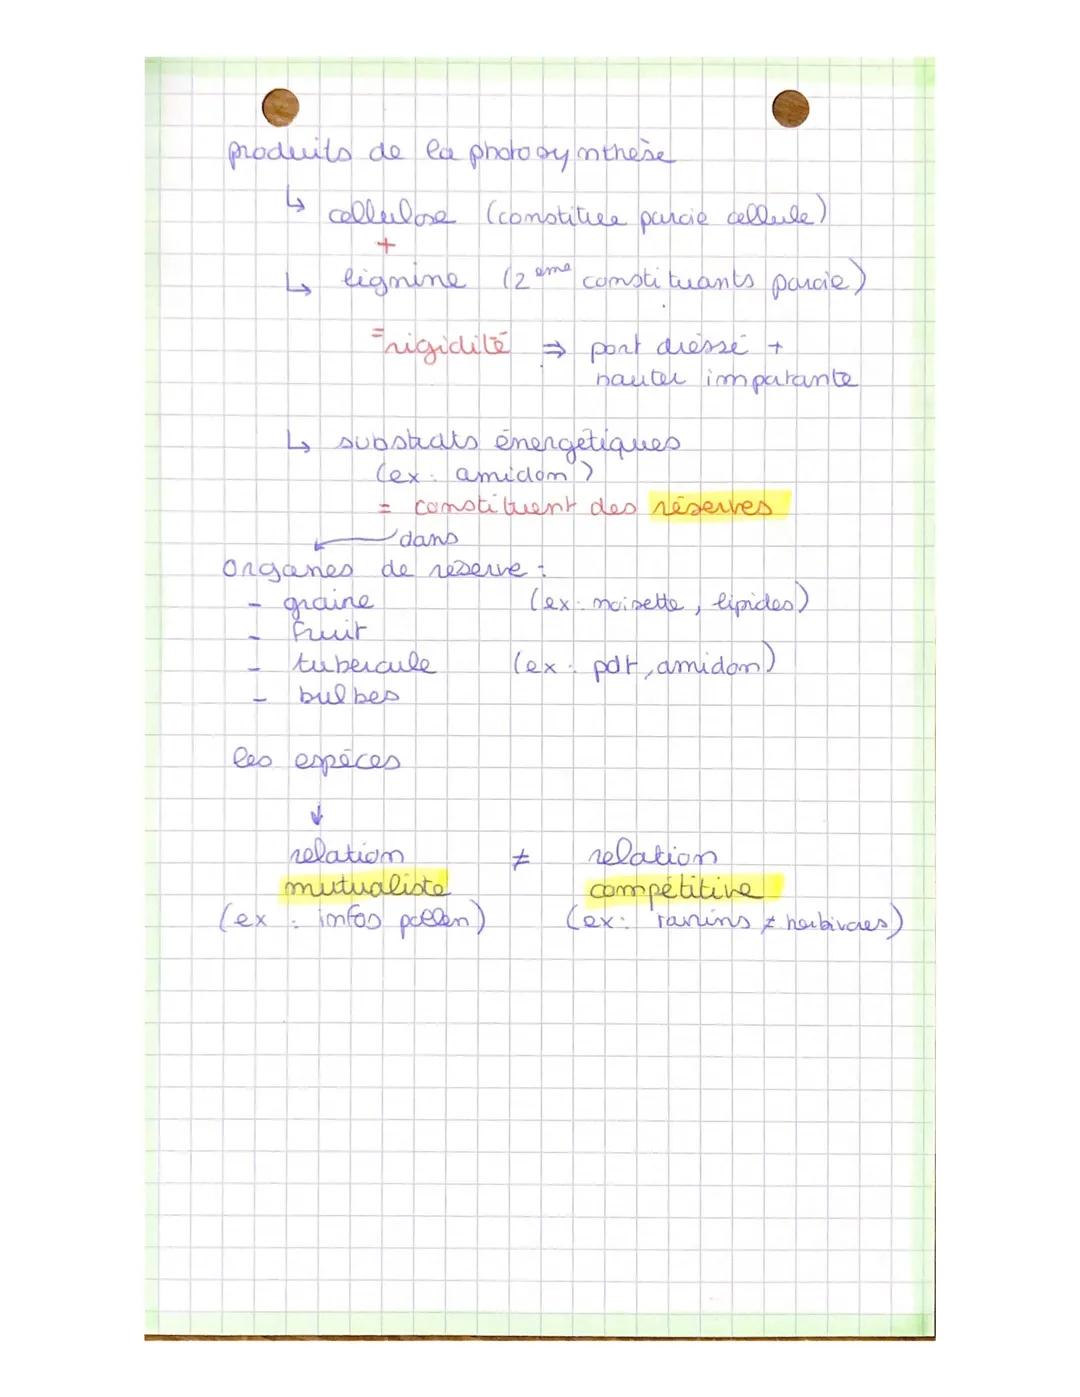 produits de la photosynthèse
↳ cellulose (constitue paroie cellule)
+
↳ lignine (2eme constituants paroie)
= rigidité ⇒ port dressé +
hauter importante
↳ substrats énergétiques
(ex : amidon)
= constituent des réserves
dans
organes de réserve :
- graine (ex : noisette, lipides)
- fruit
- tubercule (ex : pdt, amidon)
- bulbes
les espèces
↓
relation ≠ relation
mutualiste compétitive
(ex : infos pollen) (ex : tanins ≠ herbivores)